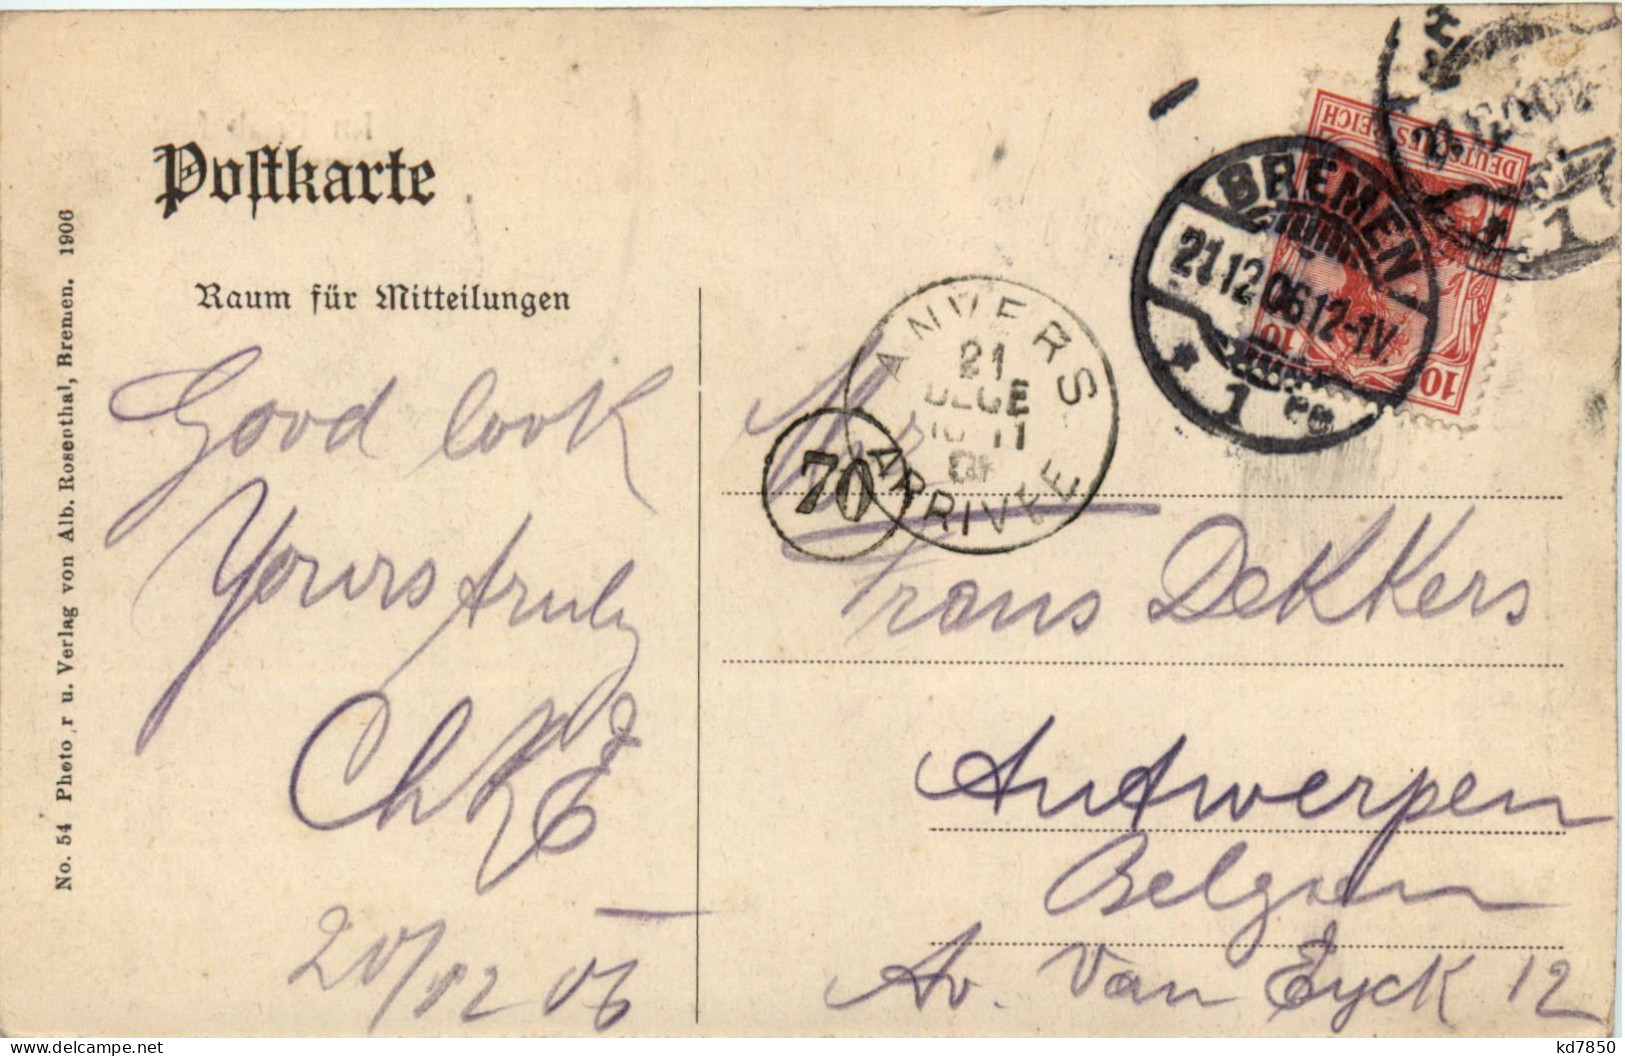 Postkarte
Raum für Mitteilungen
No. 54 Photo r u. Verlag von Alb. Rosenthal, Bremen. 1906
Good look
Yours truly
20/12 06
DEUTSCHES REICH
10 10
BREMEN
21.12.06 12-1V.
* 1
1
ANVERS
21
DECE
10-11
ARRIVEE
70
Frans Dekkers
Antwerpen
Belgien
Av. Van Eyck 12
kd7850